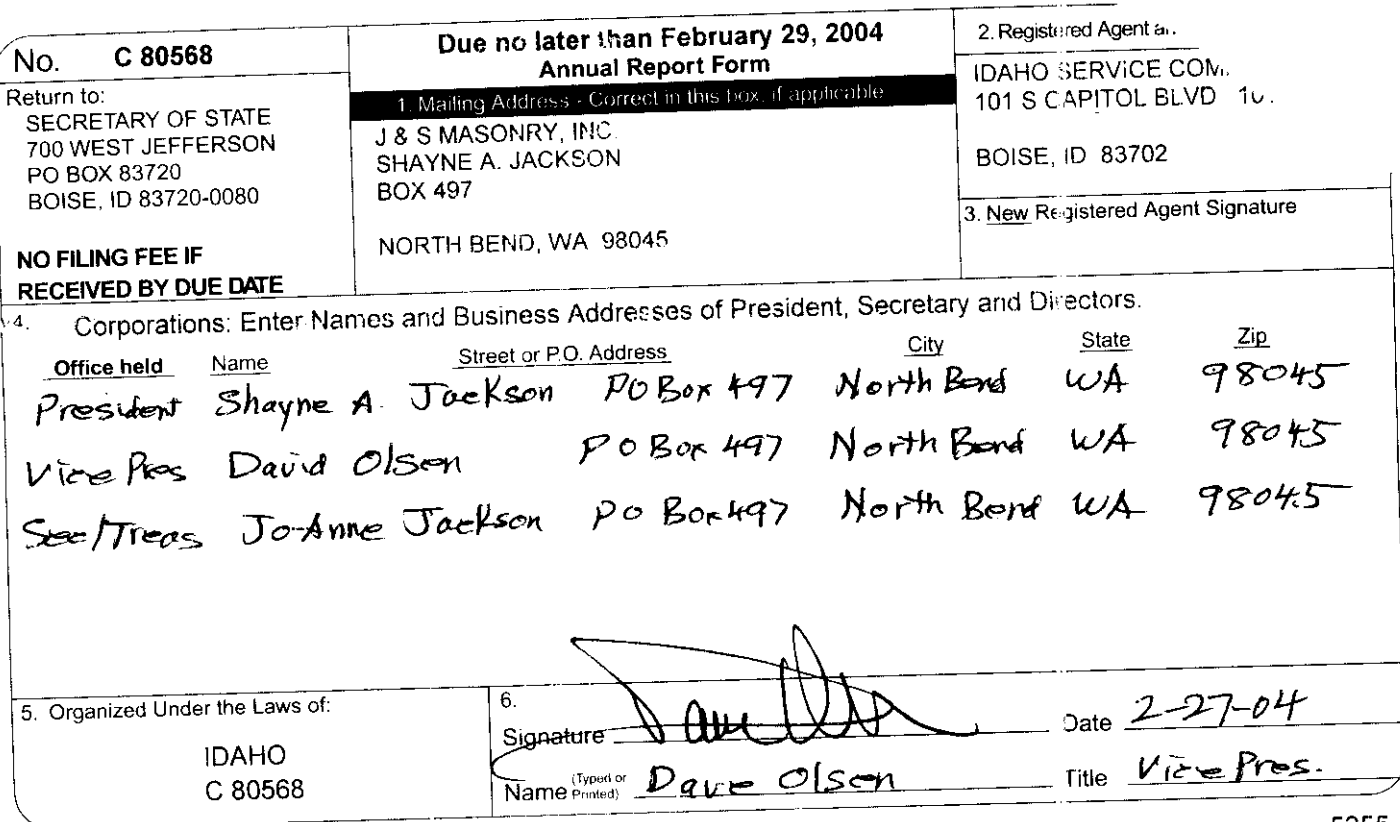 No. C 80568
Return to:
SECRETARY OF STATE
700 WEST JEFFERSON
PO BOX 83720
BOISE, ID 83720-0080
NO FILING FEE IF
RECEIVED BY DUE DATE
Due no later than February 29, 2004
Annual Report Form
1. Mailing Address - Correct in this box, if applicable
J & S MASONRY, INC.
SHAYNE A. JACKSON
BOX 497
NORTH BEND, WA 98045
2. Registered Agent
IDAHO SERVICE
101 S CAPITOL BLVD
BOISE, ID 83702
3. New Registered Agent Signature
4. Corporations: Enter Names and Business Addresses of President, Secretary and Directors.
Office held Name Street or P.O. Address City State Zip
President Shayne A. Jackson PO Box 497 North Bend WA 98045
Vice Pres David Olsen PO Box 497 North Bend WA 98045
Sec/Treas Jo-Anne Jackson PO Box 497 North Bend WA 98045
5. Organized Under the Laws of:
IDAHO
C 80568
6.
Signature Date 2-27-04
Name (Typed or Printed) Dave Olsen Title Vice Pres.